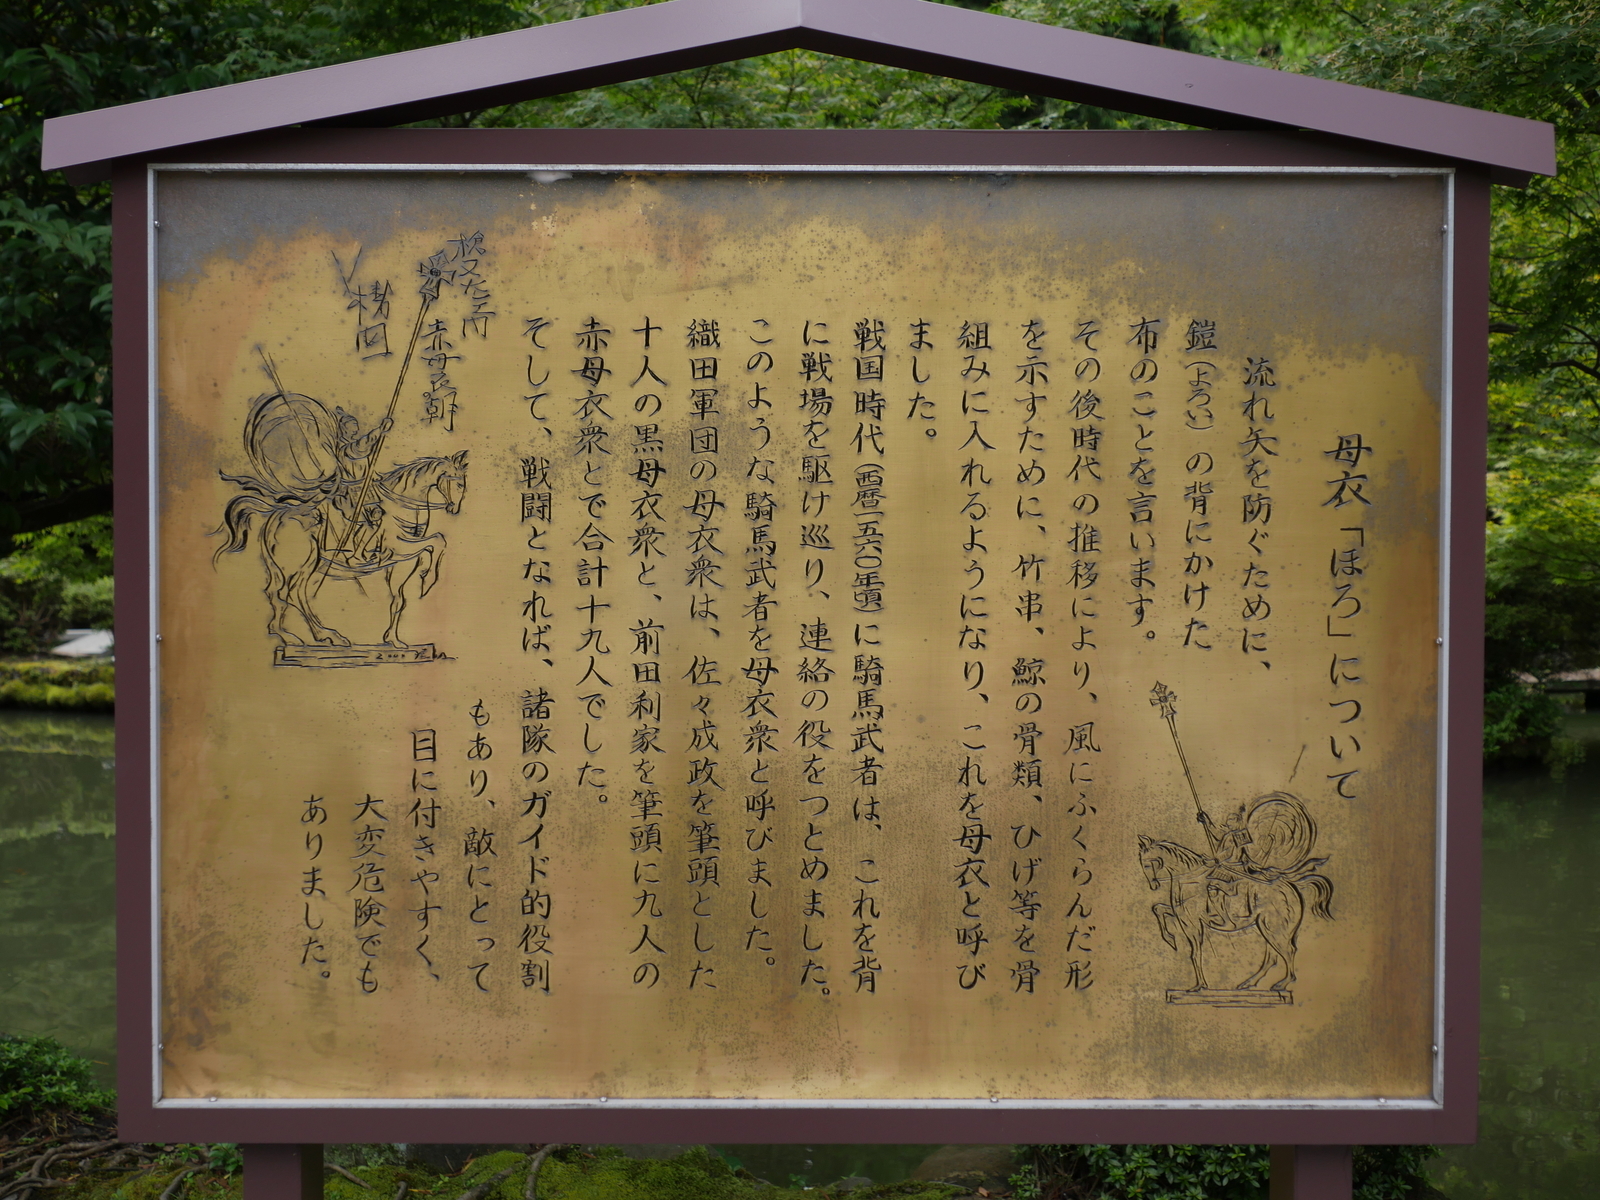 母衣「ほろ」について
流れ矢を防ぐために、
鎧（よろい）の背にかけた
布のことを言います。
その後時代の推移により、風にふくらんだ形
を示すために、竹串、鯨の骨類、ひげ等を骨
組みに入れるようになり、これを母衣と呼び
ました。
戦国時代（西暦一五六〇年頃）に騎馬武者は、これを背
に戦場を駆け巡り、連絡の役をつとめました。
このような騎馬武者を母衣衆と呼びました。
織田軍団の母衣衆は、佐々成政を筆頭とした
十人の黒母衣衆と、前田利家を筆頭に九人の
赤母衣衆とで合計十九人でした。
そして、戦闘となれば、諸隊のガイド的役割
もあり、敵にとって
目に付きやすく、
大変危険でも
ありました。
槍又左衛門
赤母衣